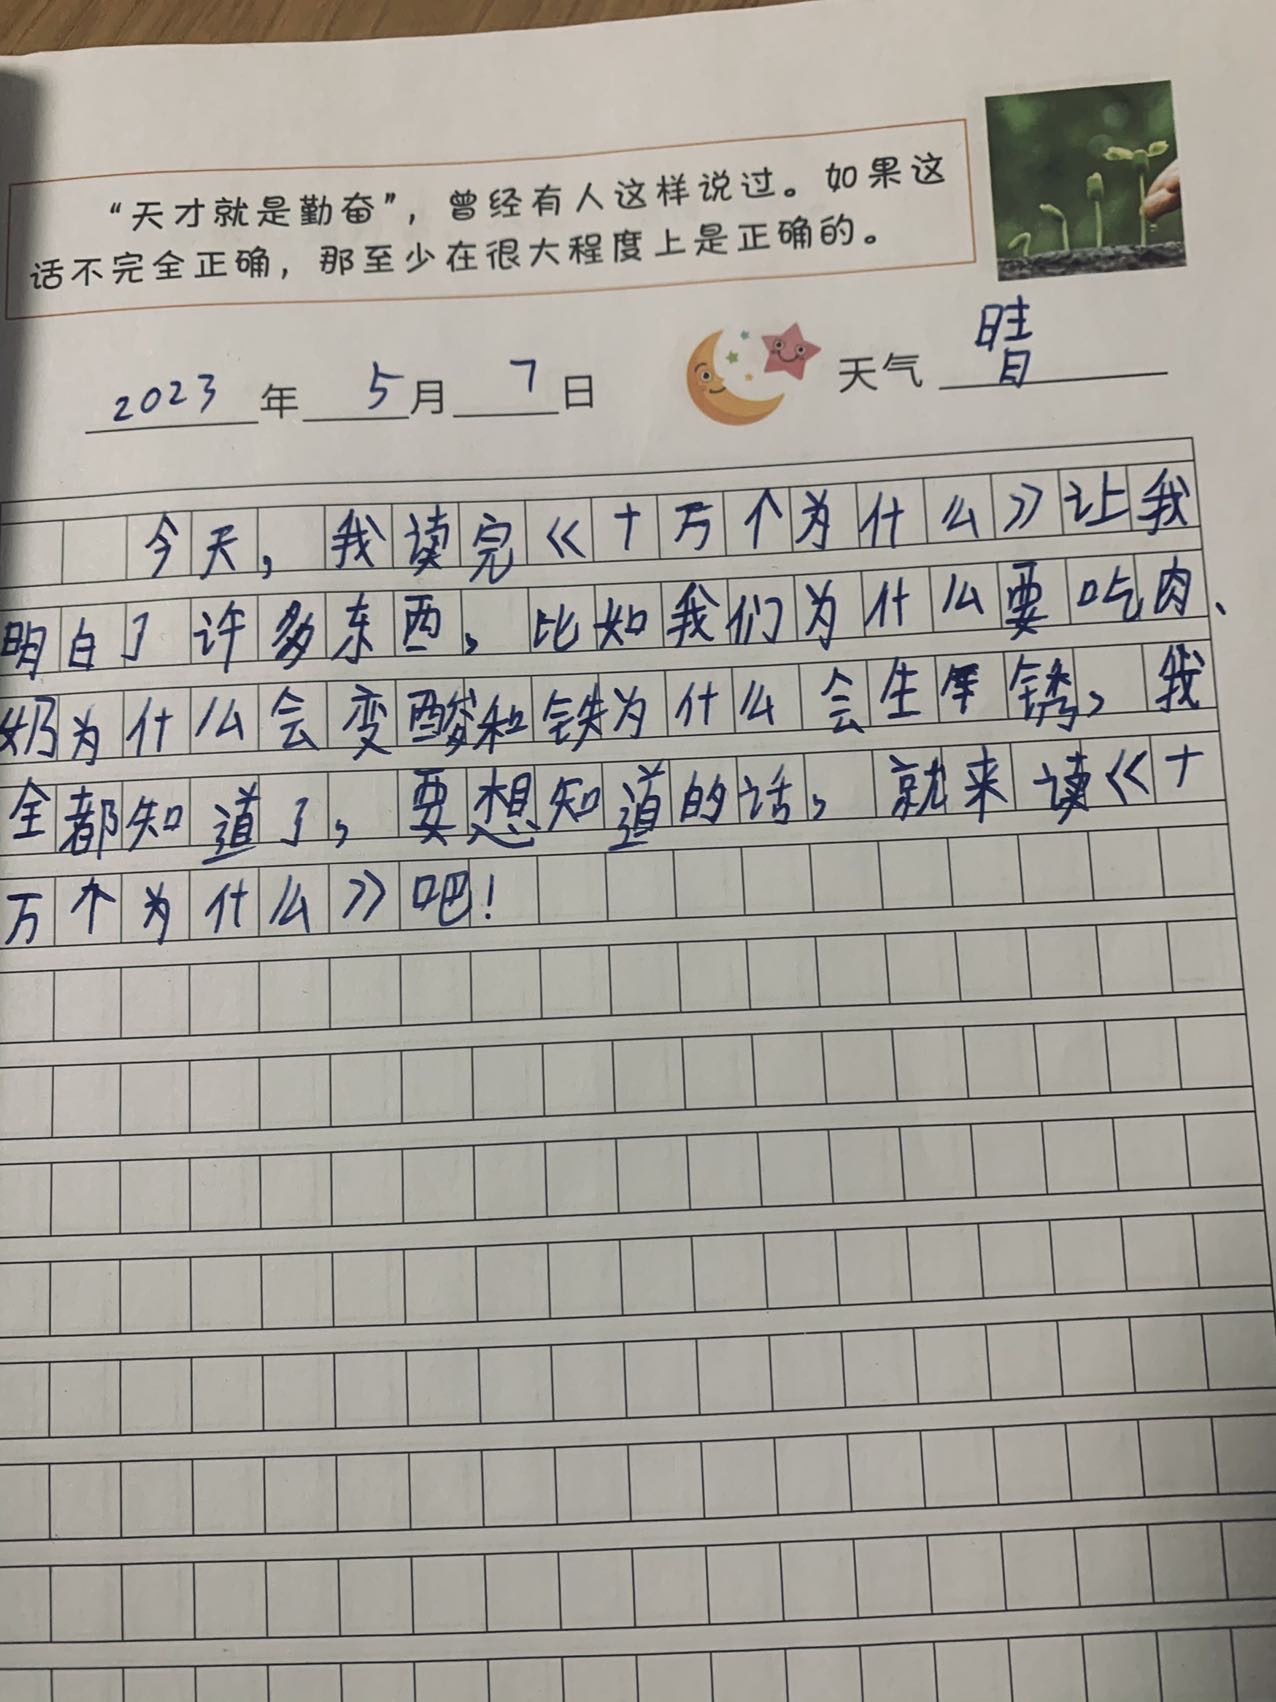 “天才就是勤奋”，曾经有人这样说过。如果这
话不完全正确，那至少在很大程度上是正确的。
2023年5月7日 天气 晴
今天，我读完《十万个为什么》让我
明白了许多东西，比如我们为什么要吃肉、
奶为什么会变酸和铁为什么会生锈，我
全都知道了，要想知道的话，就来读《十
万个为什么》吧！